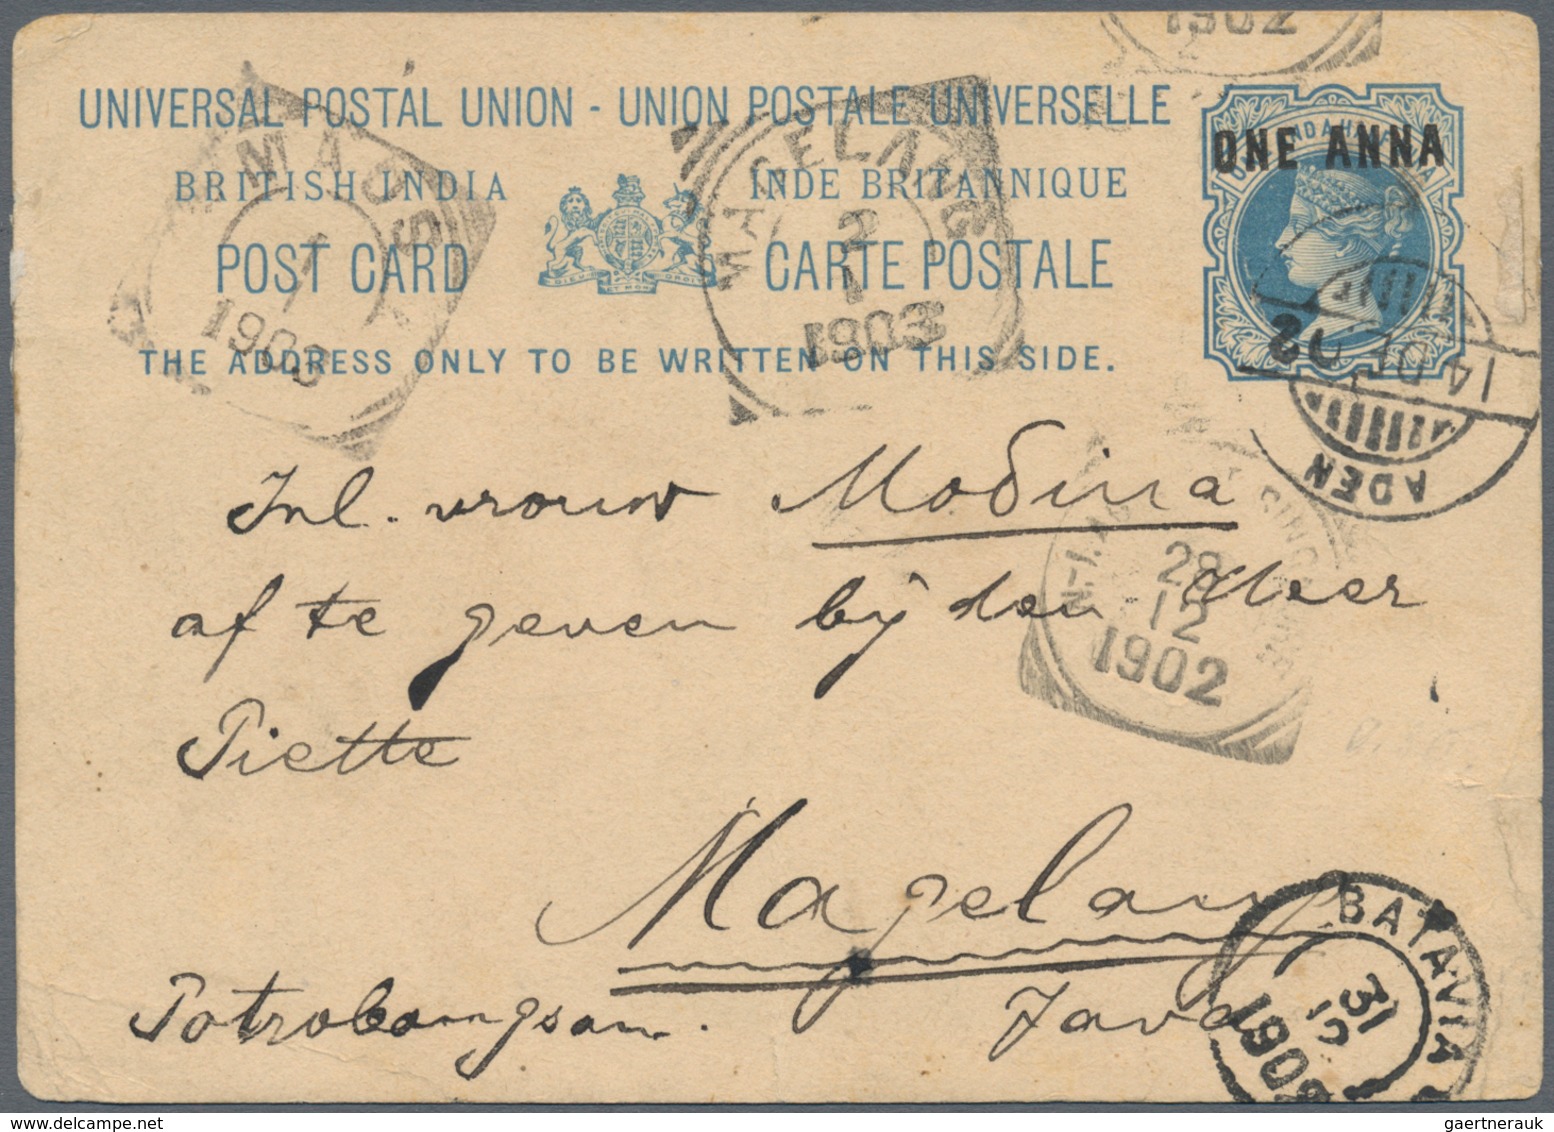 1902
UNIVERSAL POSTAL UNION - UNION POSTALE UNIVERSELLE
BRITISH INDIA INDE BRITANNIQUE
POST CARD CARTE POSTALE
THE ADDRESS ONLY TO BE WRITTEN ON THIS SIDE.
ONE ANNA
MAOS
1
1
1903
MAGELANG
2
1
1903
ADEN
14 DE 02
Inl. vrouw Modina
af te geven bij den Heer
Piette
Magelang
Potrobangsan. Java
N.I. AG SINGAPORE
28
12
1902
BATAVIA
31
12
1902
gaertnerauk @ delcampe.net